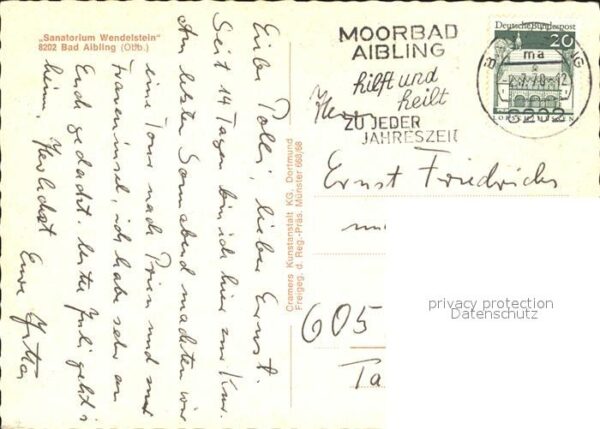 „Sanatorium Wendelstein"
8202 Bad Aibling (Obb.)
Liebe Polli, lieber Ernst.
Seit 14 Tagen bin ich hier zur Kur.
Am letzten Sonnabend machten wir
eine Tour nach Prien und zur
Fraueninsel, ich habe sehr an
Euch gedacht. Juli geht's
heim. Herzlichst Eure
Cramers Kunstanstalt KG. Dortmund
Freigeg. d. Reg.-Präs. Münster 668/68
MOORBAD
AIBLING
hilft und
heilt
ZU JEDER
JAHRESZEIT
Deutsche Bundespost
20
ma
-2.7.70-12
8202
LORSCH/HESSEN
Herrn
Ernst Friedrichs
605
Ta
privacy protection
Datenschutz